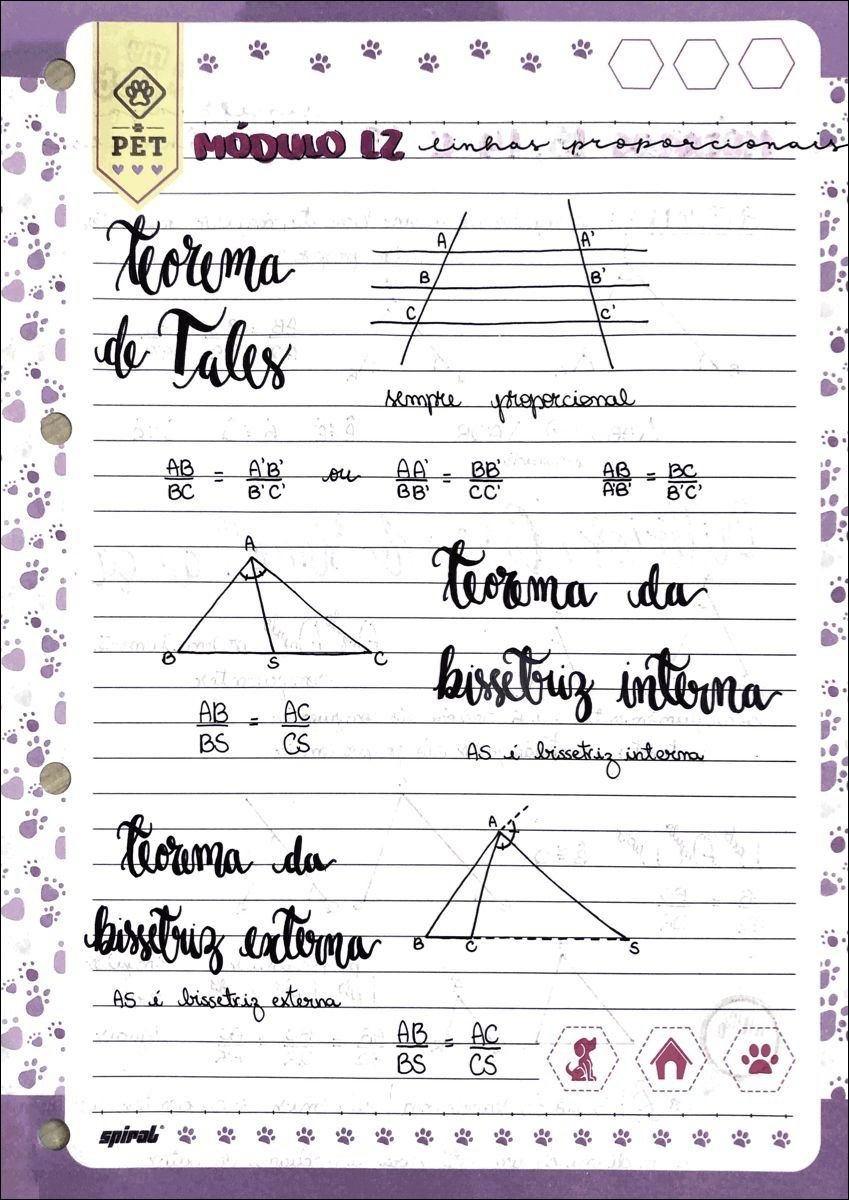 PET
MÓDULO 12 linhas proporcionais
Teorema
de Tales
A A'
B B'
C C'
sempre proporcional
AB/BC = A'B'/B'C' ou AA'/BB' = BB'/CC' AB/A'B' = BC/B'C'
A
B S C
Teorema da
bissetriz interna
AB/BS = AC/CS
AS é bissetriz interna
Teorema da
bissetriz externa
A
B C S
AS é bissetriz externa
AB/BS = AC/CS
spiral